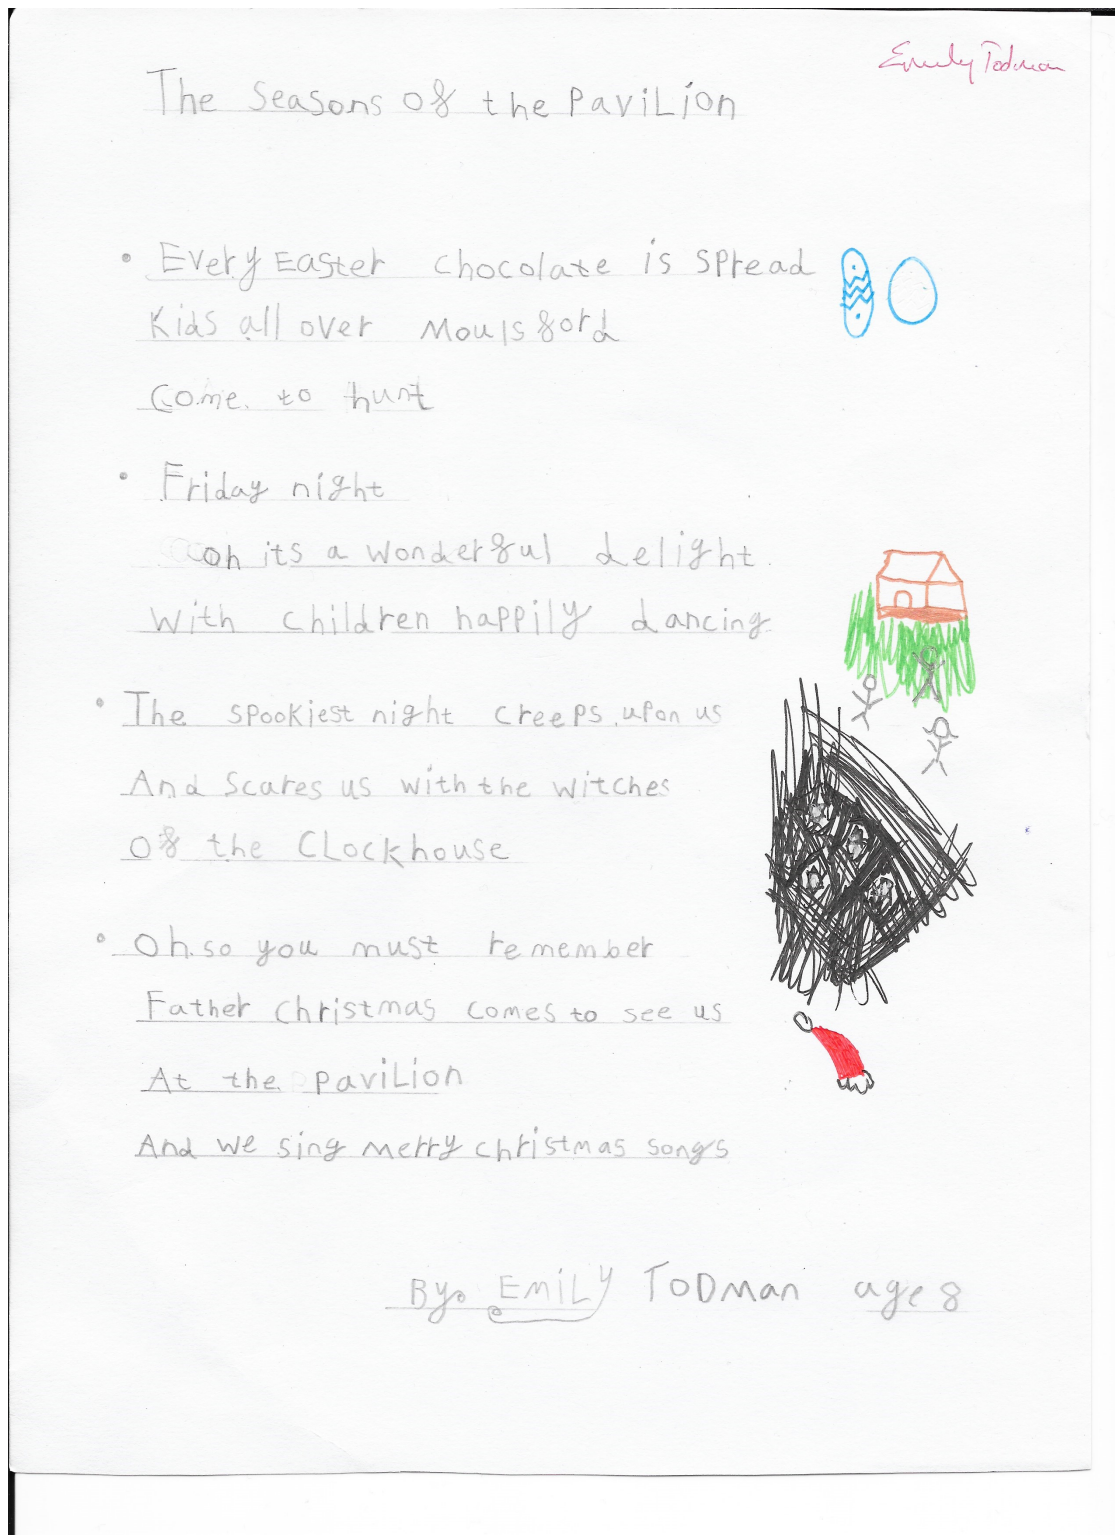 Emily Todman
The Seasons of the Pavilion
• Every Easter chocolate is spread
Kids all over Moulsford
Come to hunt
• Friday night
ooh its a wonderful delight.
With children happily dancing.
• The spookiest night creeps upon us
And scares us with the witches
Of the Clockhouse
• Oh so you must remember
Father Christmas comes to see us
At the pavilion
And we sing merry christmas songs
By. EMILY TODMAN age 8